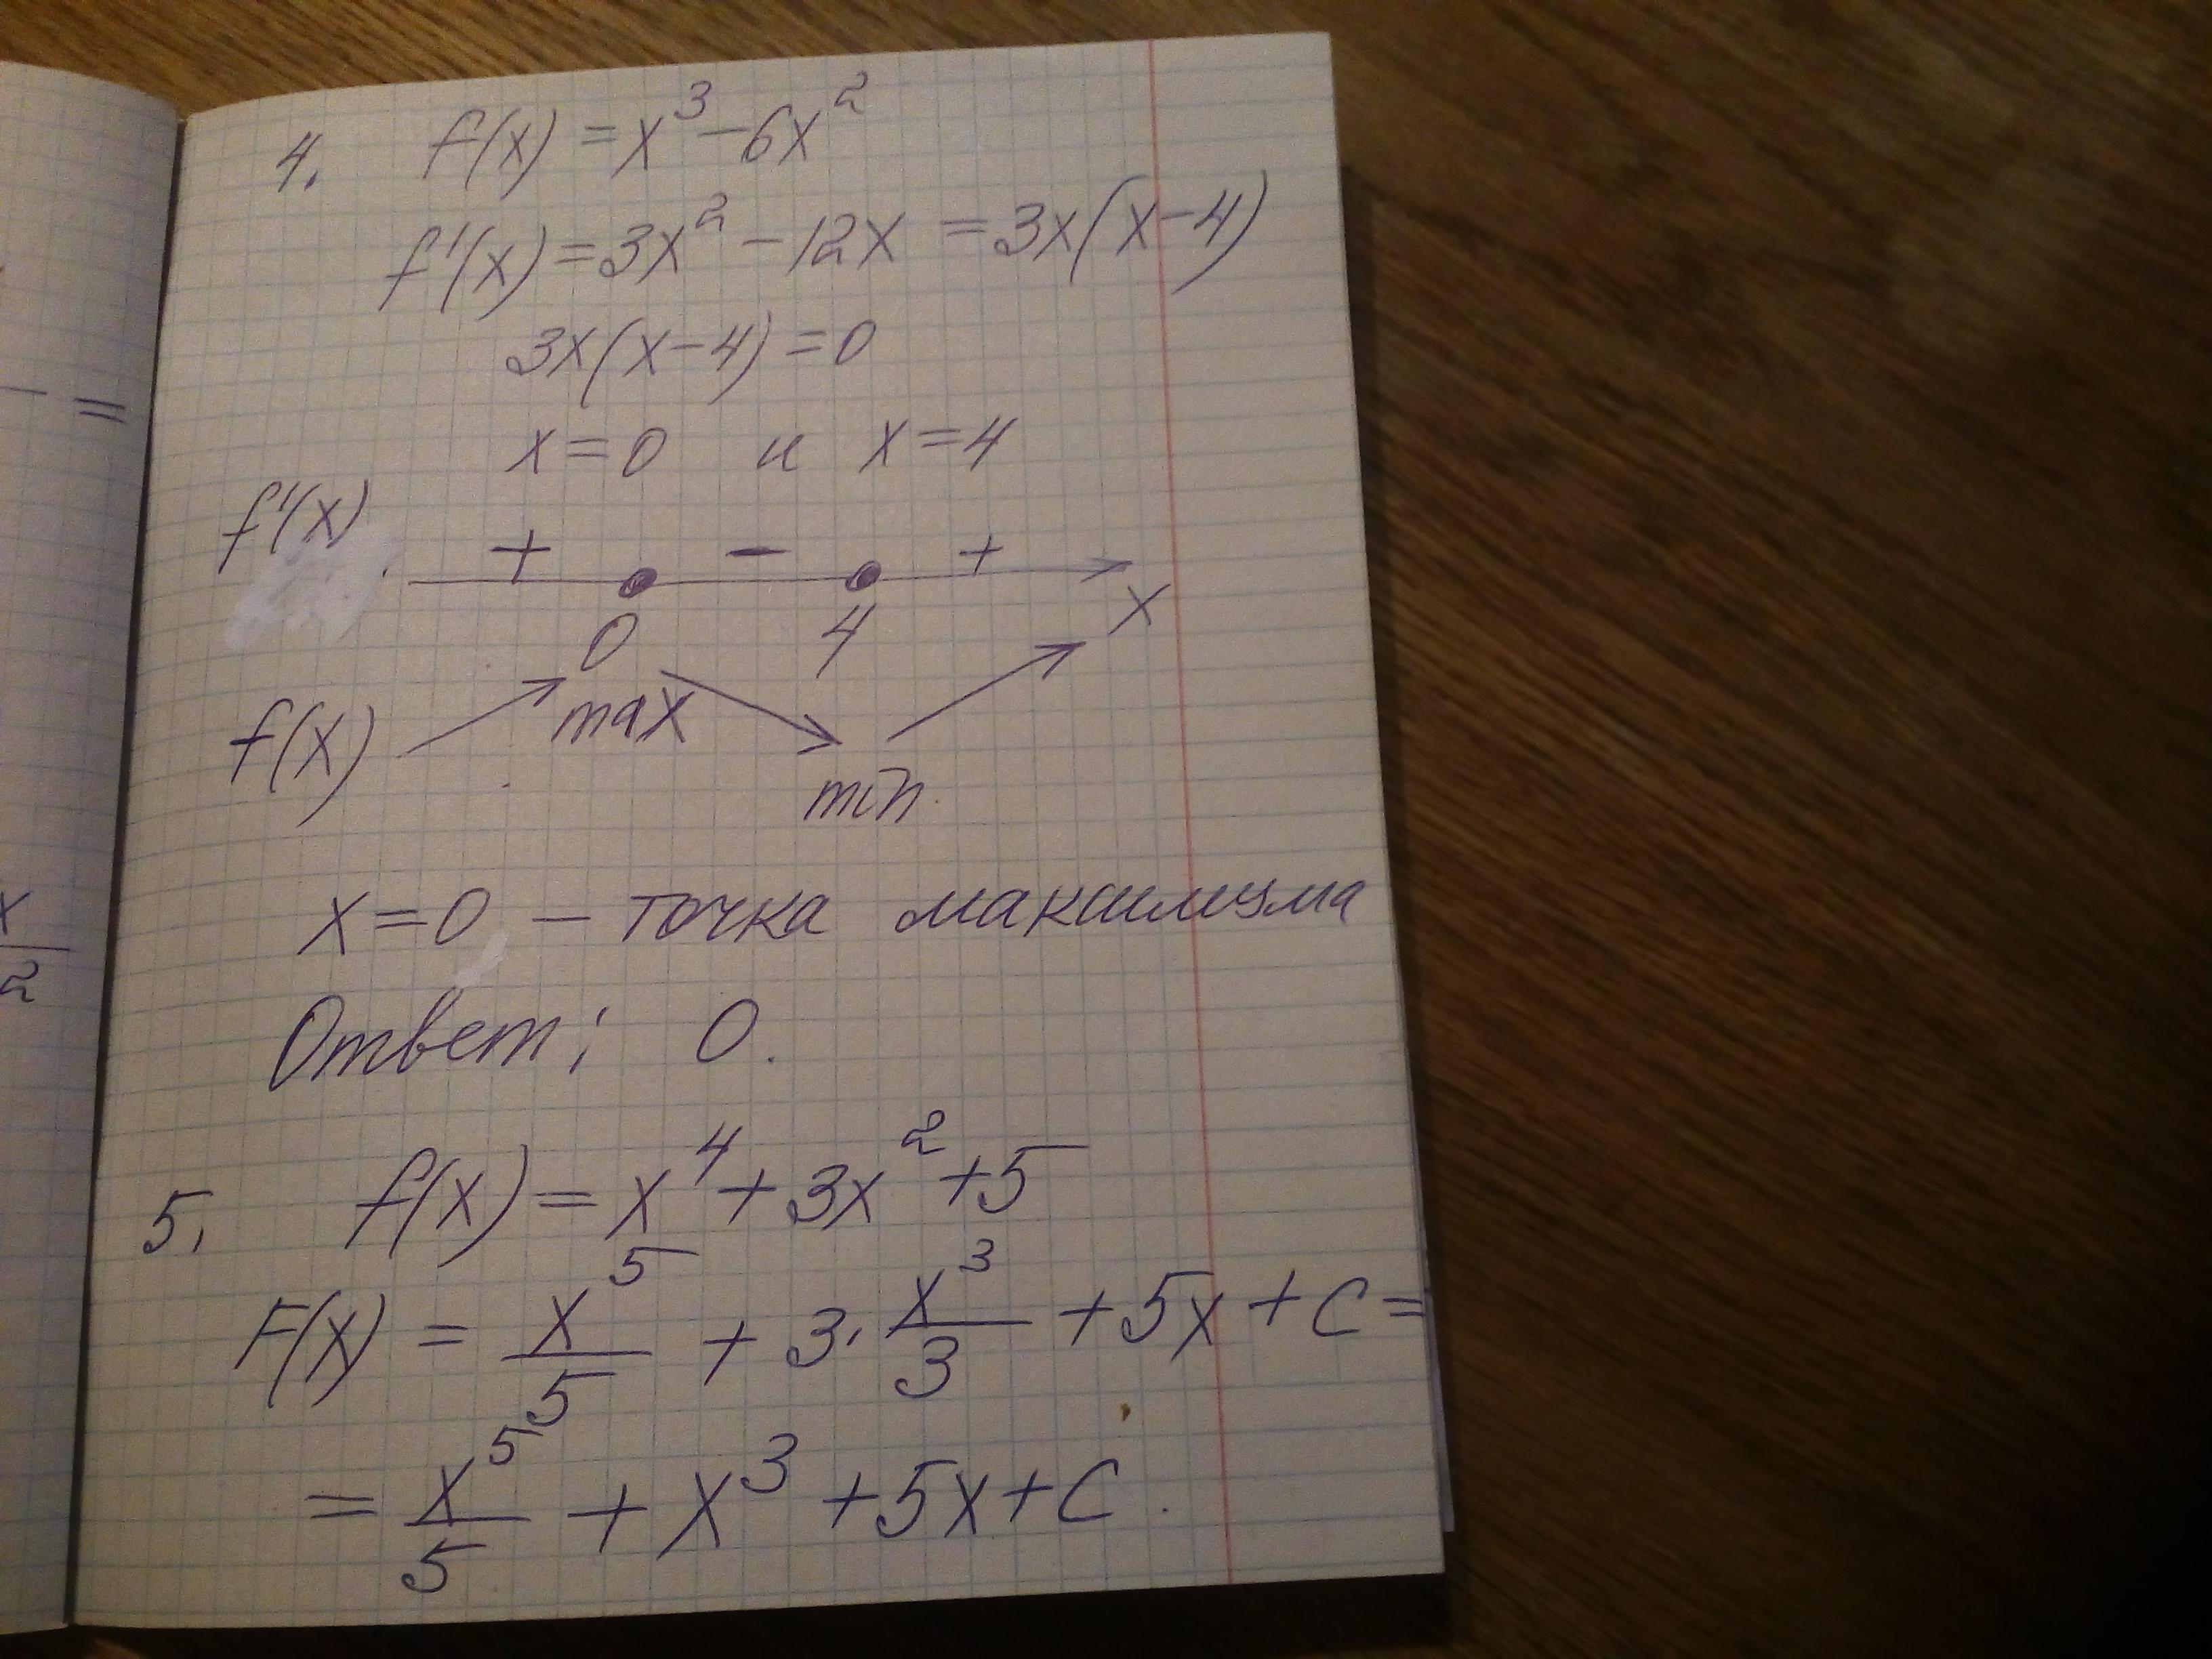 =
x
2
4. f(x) = x³ - 6x²
f'(x) = 3x² - 12x = 3x(x-4)
3x(x-4) = 0
x = 0 и x = 4
f'(x) + - + 
0 4 x
f(x) max
min
x = 0 - точка максимума
Ответ: 0.
5. f(x) = x⁴ + 3x² + 5
F(x) = x⁵/5 + 3 · x³/3 + 5x + C =
= x⁵/5 + x³ + 5x + C.